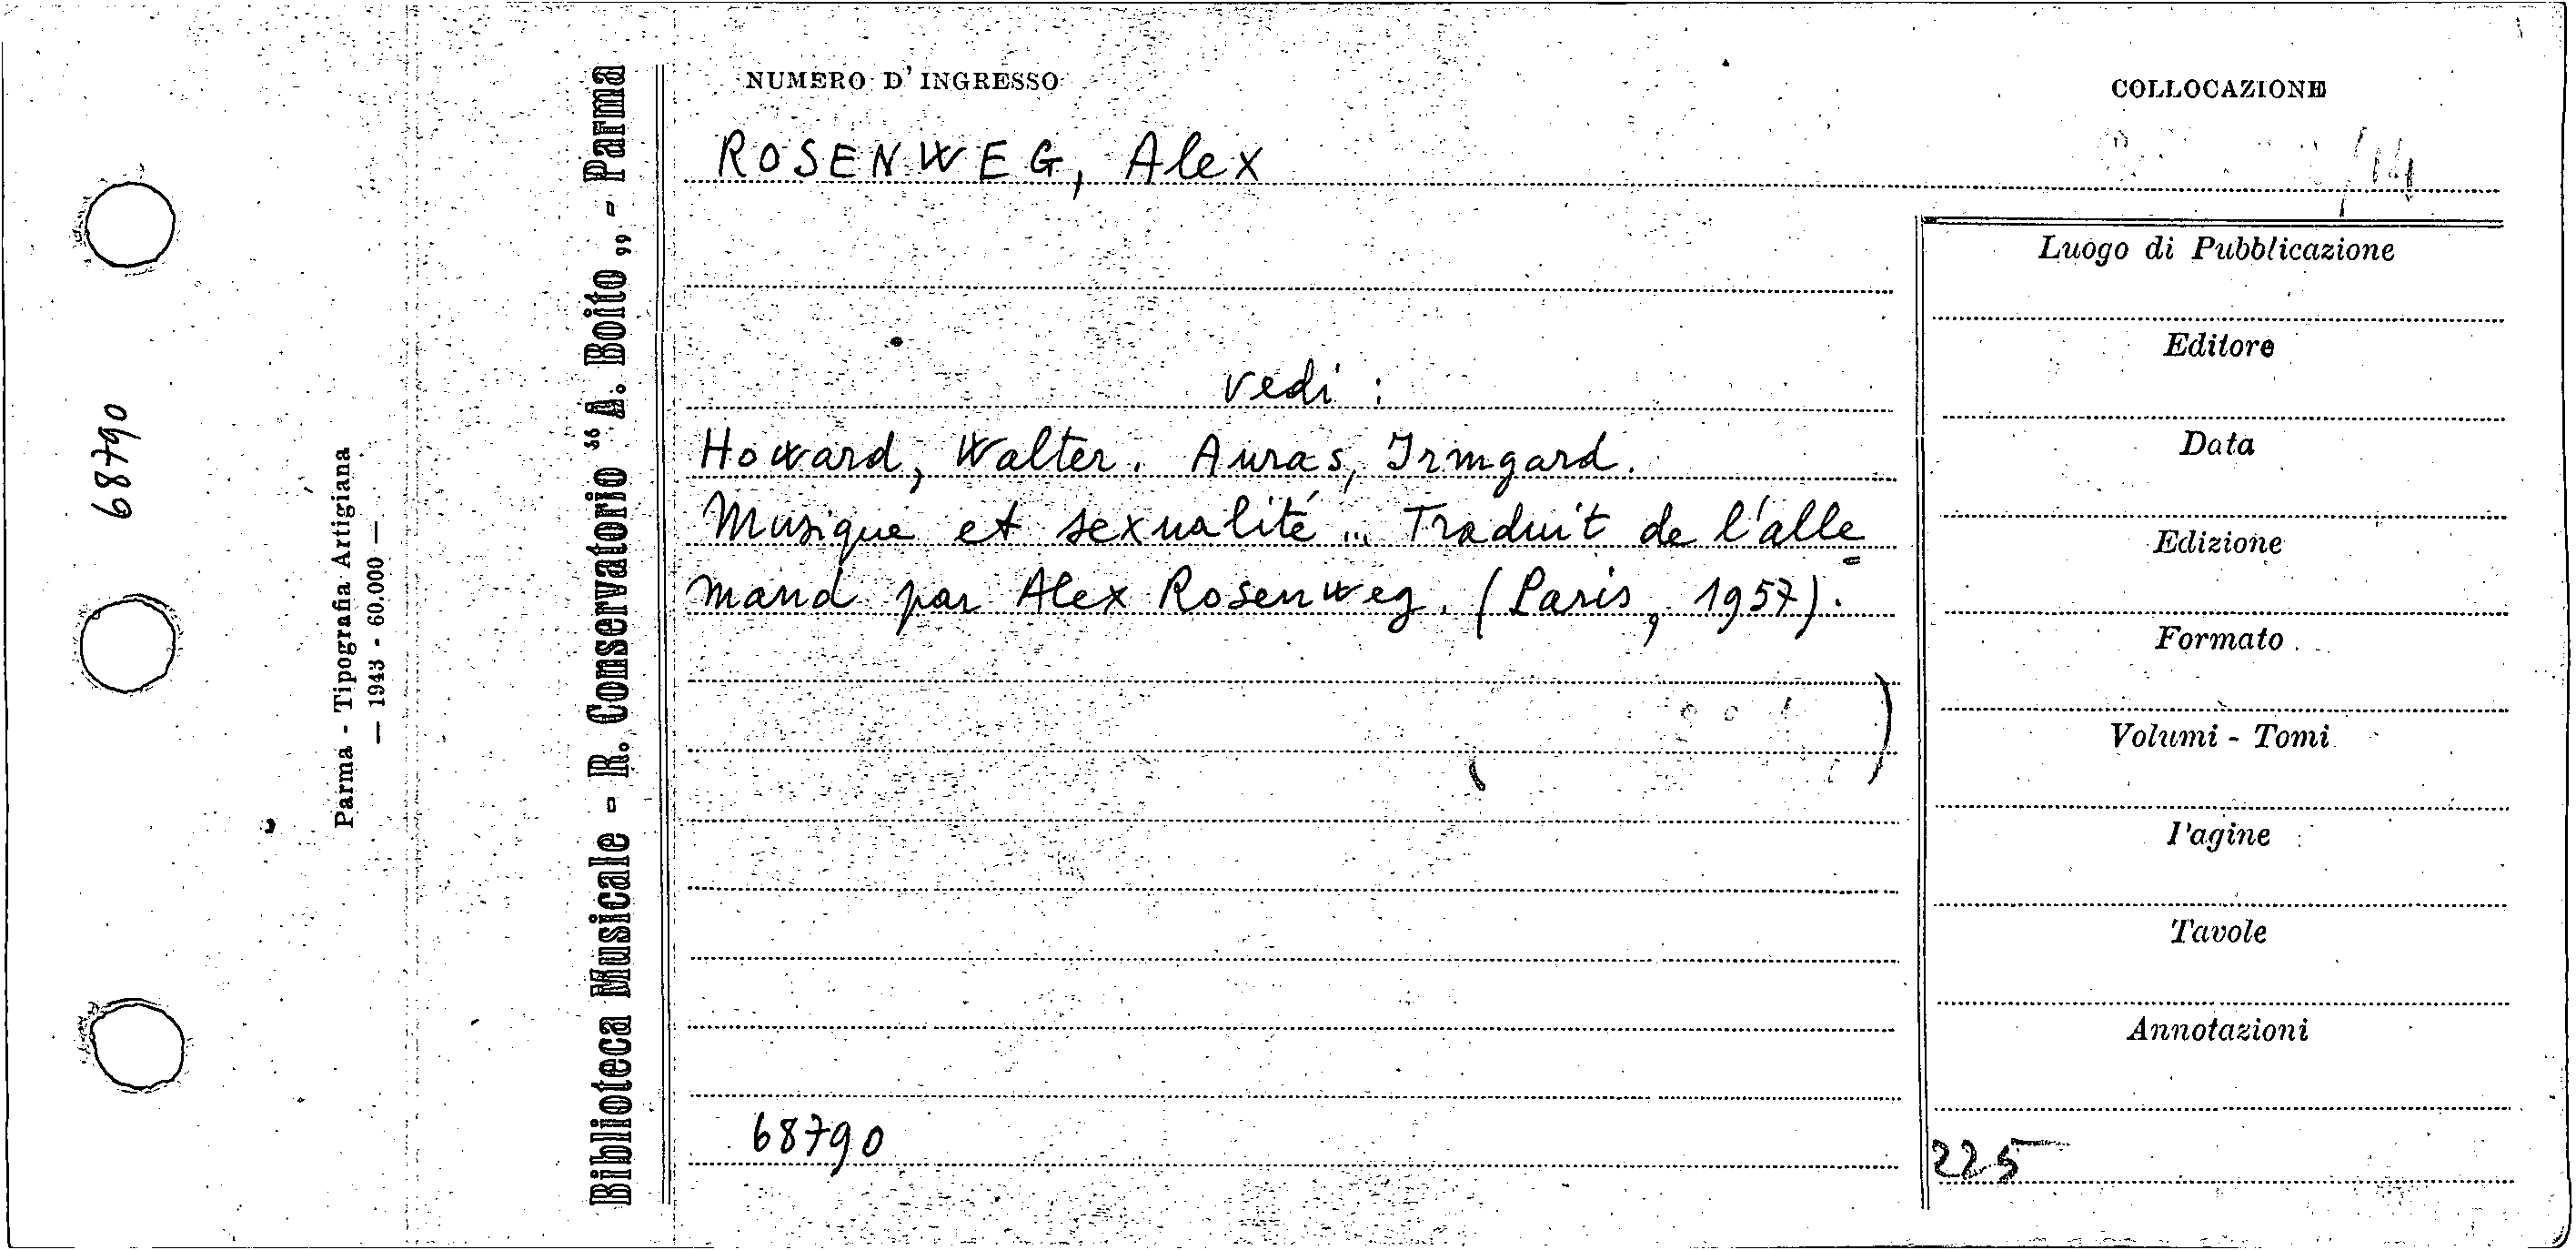 68790
Parma - Tipografia Artigiana
— 1943 - 60.000 —
Biblioteca Musicale - R. Conservatorio “ A. Boito „ - Parma
NUMERO D' INGRESSO
COLLOCAZIONE
ROSENWEG, Alex
vedi :
Howard, Walter. Auras, Irmgard.
Musique et sexualité ... Traduit de l'alle=
mand par Alex Rosenweg. (Paris, 1957).
68790
Luogo di Pubblicazione
Editore
Data
Edizione
Formato
Volumi - Tomi
Pagine
Tavole
Annotazioni
225